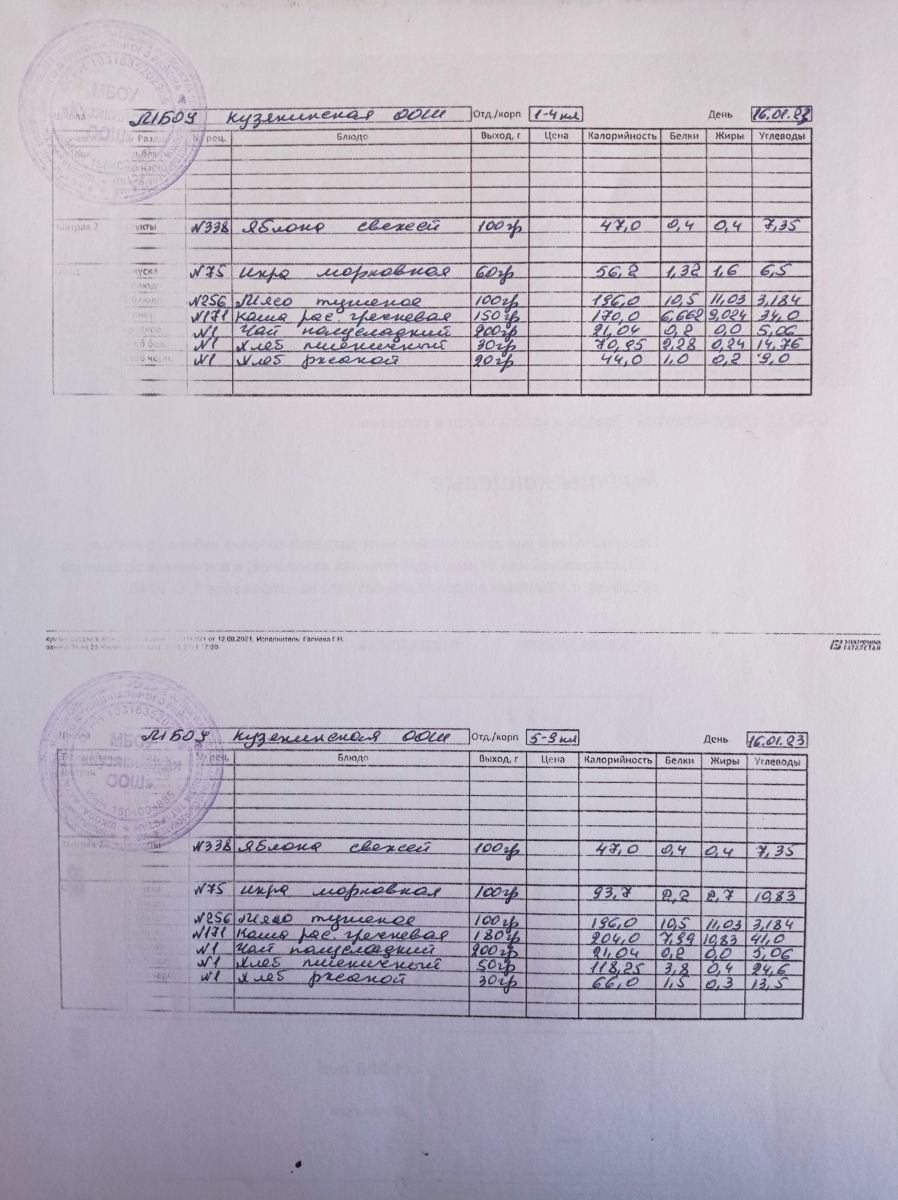 Школа МБОУ Кузякинская ООШ Отд./корп 1-4 кл День 16.01.23
Разд № рец. Блюдо Выход, г Цена Калорийность Белки Жиры Углеводы
завтрак 2 фрукты №338 Яблоко свежей 100гр 47,0 0,4 0,4 7,35
закуска №75 Икра морковная 60гр 56,2 1,32 1,6 6,5
№256 Мясо тушеное 100гр 196,0 10,5 11,03 3,184
№171 Каша рас. гречневая 150гр 170,0 6,662 9,024 34,0
№1 Чай полусладкий 200гр 21,04 0,2 0,0 5,06
№1 Хлеб пшеничный 30гр 70,95 2,28 0,24 14,76
№1 Хлеб ржаной 20гр 44,0 1,0 0,2 9,0
от 12.08.2021. Исполнитель: Галиева Г.Н.
ЭЛЕКТРОННЫЙ ТАТАРСТАН
Школа МБОУ Кузякинская ООШ Отд./корп 5-9 кл День 16.01.23
рец. Блюдо Выход, г Цена Калорийность Белки Жиры Углеводы
завтрак 2 №338 Яблоко свежей 100гр 47,0 0,4 0,4 7,35
№75 Икра морковная 100гр 93,7 2,2 2,7 10,83
№256 Мясо тушеное 100гр 196,0 10,5 11,03 3,184
№171 Каша рас. гречневая 180гр 204,0 7,99 10,83 41,0
№1 Чай полусладкий 200гр 21,04 0,2 0,0 5,06
№1 Хлеб пшеничный 50гр 118,25 3,8 0,4 24,6
№1 Хлеб ржаной 30гр 66,0 1,5 0,3 13,5